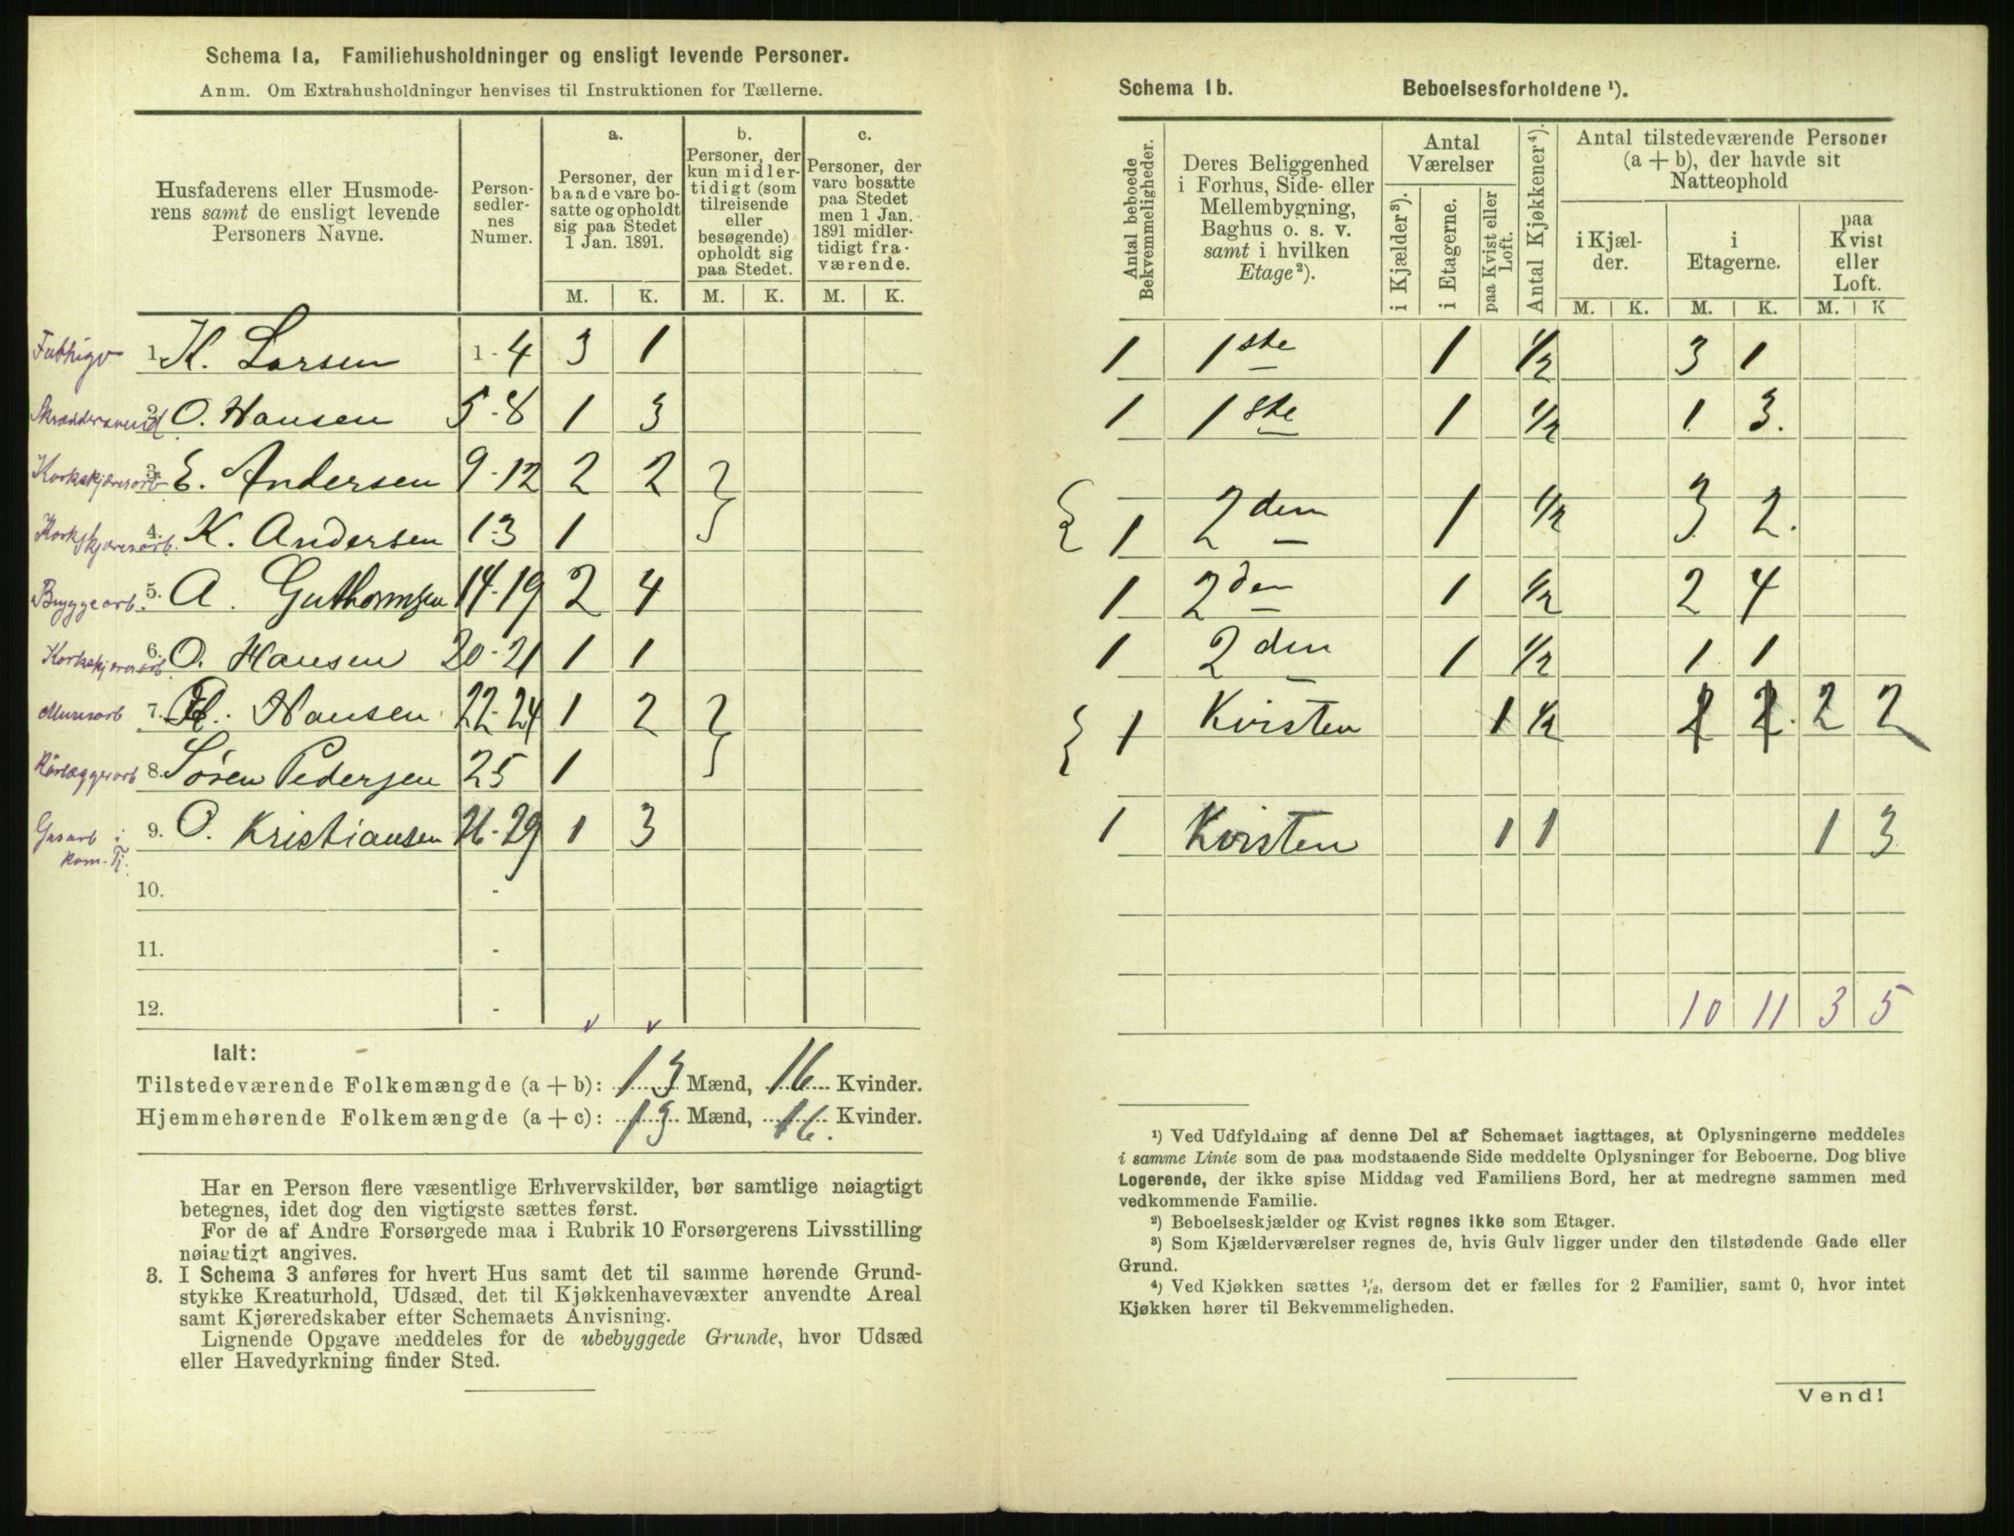 Schema 1a. Familiehusholdninger og ensligt levende Personer.
Anm. Om Extrahusholdninger henvises til Instruktionen for Tællerne.
Husfaderens eller Husmode-
rens samt de ensligt levende
Personers Navne.
Person-
sedler-
nes
Numer.
a.
Personer, der
baade vare bo-
satte og opholdt
sig paa Stedet
1 Jan. 1891.
b.
Personer, der
kun midler-
tidigt (som
tilreisende
eller
besøgende)
opholdt sig
paa Stedet.
c.
Personer, der
vare bosatte
paa Stedet
men 1 Jan.
1891 midler-
tidigt fra-
værende.
M. K. M. K. M. K.
1. K. Larsen 1-4 3 1
Skræddersvend 2. O. Hansen 5-8 1 3
Korkskjærerarb 3. E. Andersen 9-12 2 2
Korkskjærerarb. 4. K. Andersen 13 1
Bryggearb. 5. A. Guthormsen 14-19 2 4
Korkskjærerarb. 6. O. Hansen 20-21 1 1
Murerarb 7. H. Hansen 22-24 1 2
Rørlæggerarb 8. Søren Pedersen 25 1
Gasarb i
kom. Tj. 9. O. Kristiansen 26-29 1 3
10. -
11. -
12. -
Ialt:
Tilstedeværende Folkemængde (a + b): 13 Mænd, 16 Kvinder.
Hjemmehørende Folkemængde (a + c): 13 Mænd, 16. Kvinder.
Har en Person flere væsentlige Erhvervskilder, bør samtlige nøiagtigt
betegnes, idet dog den vigtigste sættes først.
For de af Andre Forsørgede maa i Rubrik 10 Forsørgerens Livsstilling
nøiagtigt angives.
3. I Schema 3 anføres for hvert Hus samt det til samme hørende Grund-
stykke Kreaturhold, Udsæd, det til Kjøkkenhavevæxter anvendte Areal
samt Kjøreredskaber efter Schemaets Anvisning.
Lignende Opgave meddeles for de ubebyggede Grunde, hvor Udsæd
eller Havedyrkning finder Sted.
Schema 1b. Beboelsesforholdene ¹).
Antal beboede
Bekvemmeligheder.
Deres Beliggenhed
i Forhus, Side- eller
Mellembygning,
Baghus o. s. v.
samt i hvilken
Etage²).
Antal
Værelser
i Kjælder³).
i Etagerne.
paa Kvist eller
Loft.
Antal Kjøkkener⁴).
Antal tilstedeværende Personer
(a + b), der havde sit
Natteophold
i Kjæl-
der.
i
Etagerne.
paa
Kvist
eller
Loft.
M. K. M. K. M. K
1 1ste 1 1/2 3 1
1 1ste 1 1/2 1 3.
1 2den 1 1/2 3 2.
1 2den 1 1/2 2 4
1 2den 1 1/2 1 1
1 Kvisten 1 1/2 2 2. 2 2
1 Kvisten 1 1 1 3
10 11 3 5
¹) Ved Udfyldning af denne Del af Schemaet iagttages, at Oplysningerne meddeles
i samme Linie som de paa modstaaende Side meddelte Oplysninger for Beboerne. Dog blive
Logerende, der ikke spise Middag ved Familiens Bord, her at medregne sammen med
vedkommende Familie.
²) Beboelseskjælder og Kvist regnes ikke som Etager.
³) Som Kjælderværelser regnes de, hvis Gulv ligger under den tilstødende Gade eller
Grund.
⁴) Ved Kjøkken sættes ¹/₂, dersom det er fælles for 2 Familier, samt 0, hvor intet
Kjøkken hører til Bekvemmeligheden.
Vend!